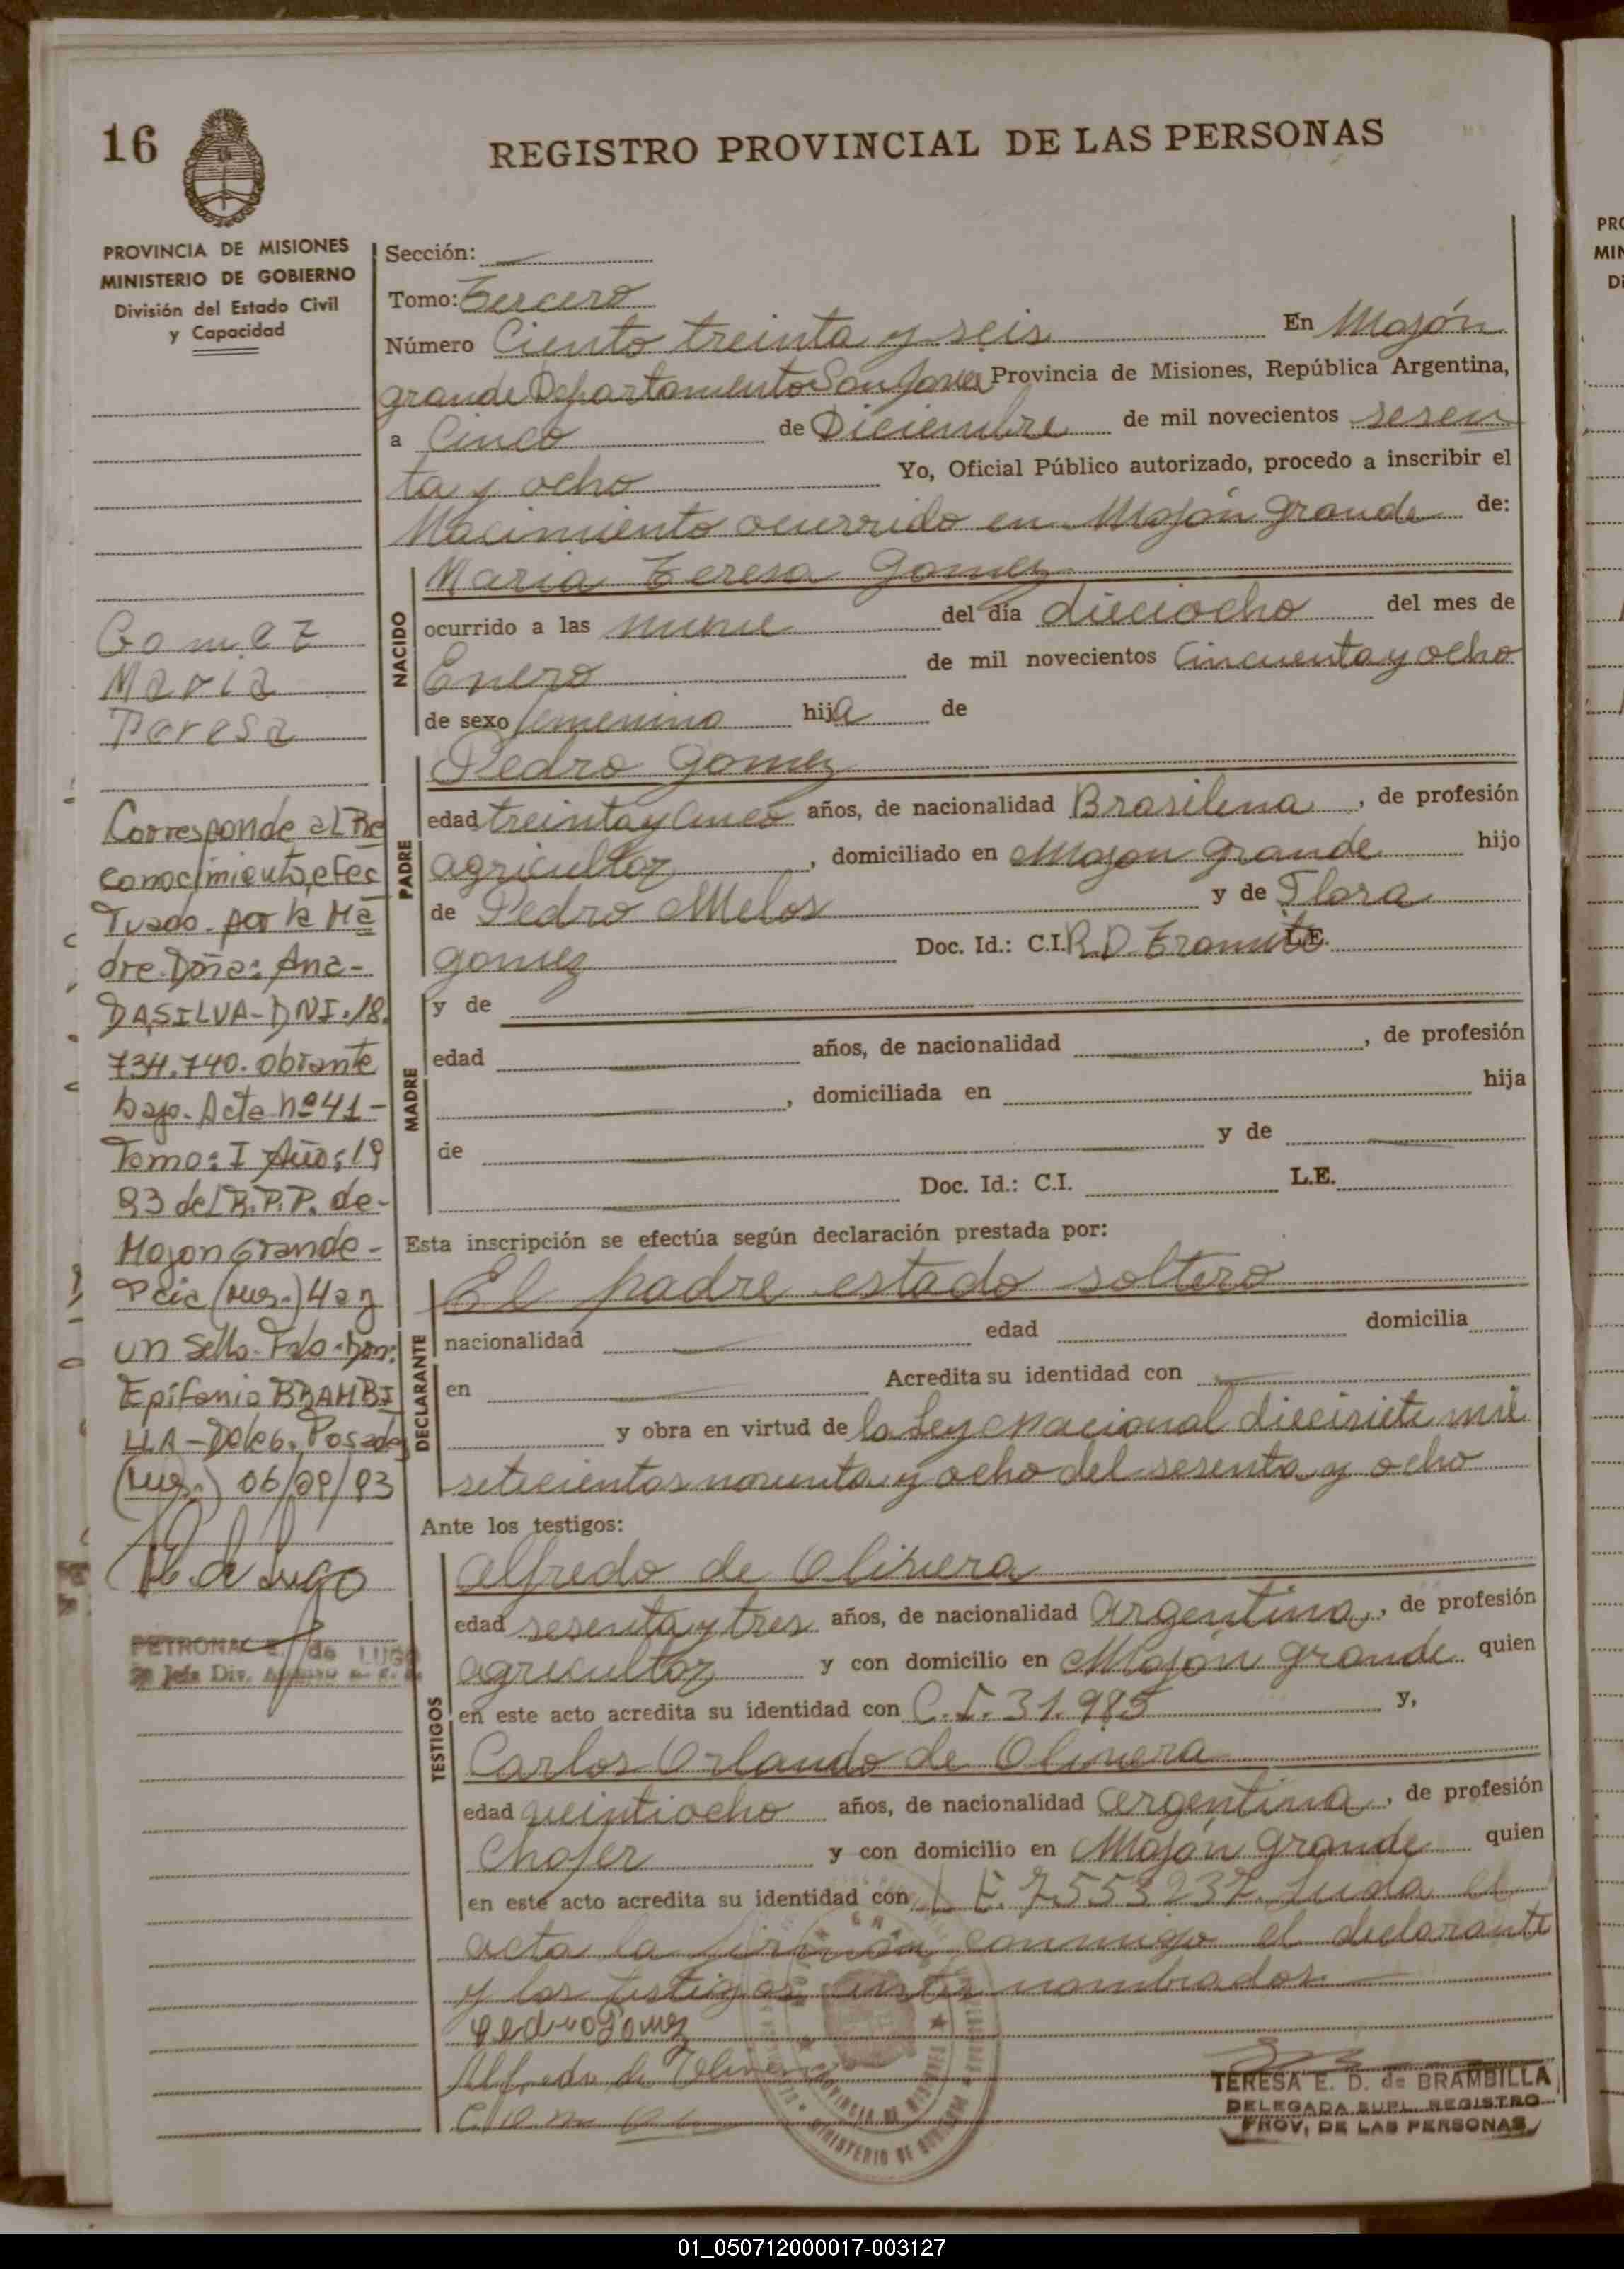 16
REGISTRO PROVINCIAL DE LAS PERSONAS
PROVINCIA DE MISIONES
MINISTERIO DE GOBIERNO
División del Estado Civil
y Capacidad
Gomez
Maria
Teresa
Corresponde al Re
conocimiento, efec
Tuado. por la Ma
dre Doña: Ana-
DASILVA-DNI.18.
734.740. obrante
bajo. Acta nº 41-
Tomo: I Año: 19
93 del R.P.P. de-
Mojon Grande-
Pcia (Mnes.) Hay
un Sello. Fdo. Don:
Epifanio BRAMBI
LLA-Deleg. Posadas
(Mnes.) 06/09/93
de Lugo
PETRONA E. de LUGO
Jefa Div.
Sección:
Tomo: Tercero
Número Ciento treinta y seis En Mojón
grande Departamento San Javier Provincia de Misiones, República Argentina,
a Cinco de Diciembre de mil novecientos sesen
ta y ocho Yo, Oficial Público autorizado, procedo a inscribir el
Nacimiento ocurrido en Mojón grande de:
NACIDO
Maria Teresa Gomez
ocurrido a las nueve del día dieciocho del mes de
Enero de mil novecientos Cincuenta y ocho
de sexo femenino hija de
PADRE
Pedro Gomez
edad treinta y cinco años, de nacionalidad Brasilena, de profesión
agricultor, domiciliado en Mojon grande hijo
de Pedro Melos y de Flora
gomez Doc. Id.: C.I. R.D. Tramite L.E.
MADRE
y de
edad años, de nacionalidad , de profesión
, domiciliada en hija
de y de
Doc. Id.: C.I. L.E.
Esta inscripción se efectúa según declaración prestada por:
DECLARANTE
El padre estado soltero
nacionalidad edad domicilia
en Acredita su identidad con
y obra en virtud de la Ley Nacional diecisiete mil
setecientos noventa y ocho del sesenta y ocho
Ante los testigos:
TESTIGOS
Alfredo de Olivera
edad sesenta y tres años, de nacionalidad Argentina, de profesión
agricultor y con domicilio en Mojón grande quien
en este acto acredita su identidad con C.I. 31.985 y,
Carlos Orlando de Olivera
edad veintiocho años, de nacionalidad Argentina, de profesión
Chofer y con domicilio en Mojón grande quien
en este acto acredita su identidad con L E. 7.553237 Leida el
acta la firman conmigo el declarante
y los testigos antes nombrados.
Pedro Gomez
Alfredo de Olivera
TERESA E. D. de BRAMBILLA
DELEGADA SUPL. REGISTRO
PROV. DE LAS PERSONAS
MINISTERIO DE GOBIERNO
PROVINCIA DE MISIONES
01_050712000017-003127